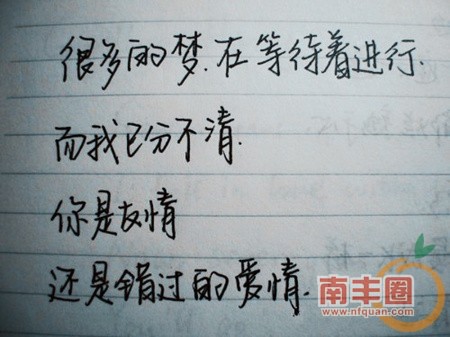 很多的梦.在等待着进行.
而我已分不清.
你是友情
还是错过的爱情.
南丰圈
www.nfquan.com